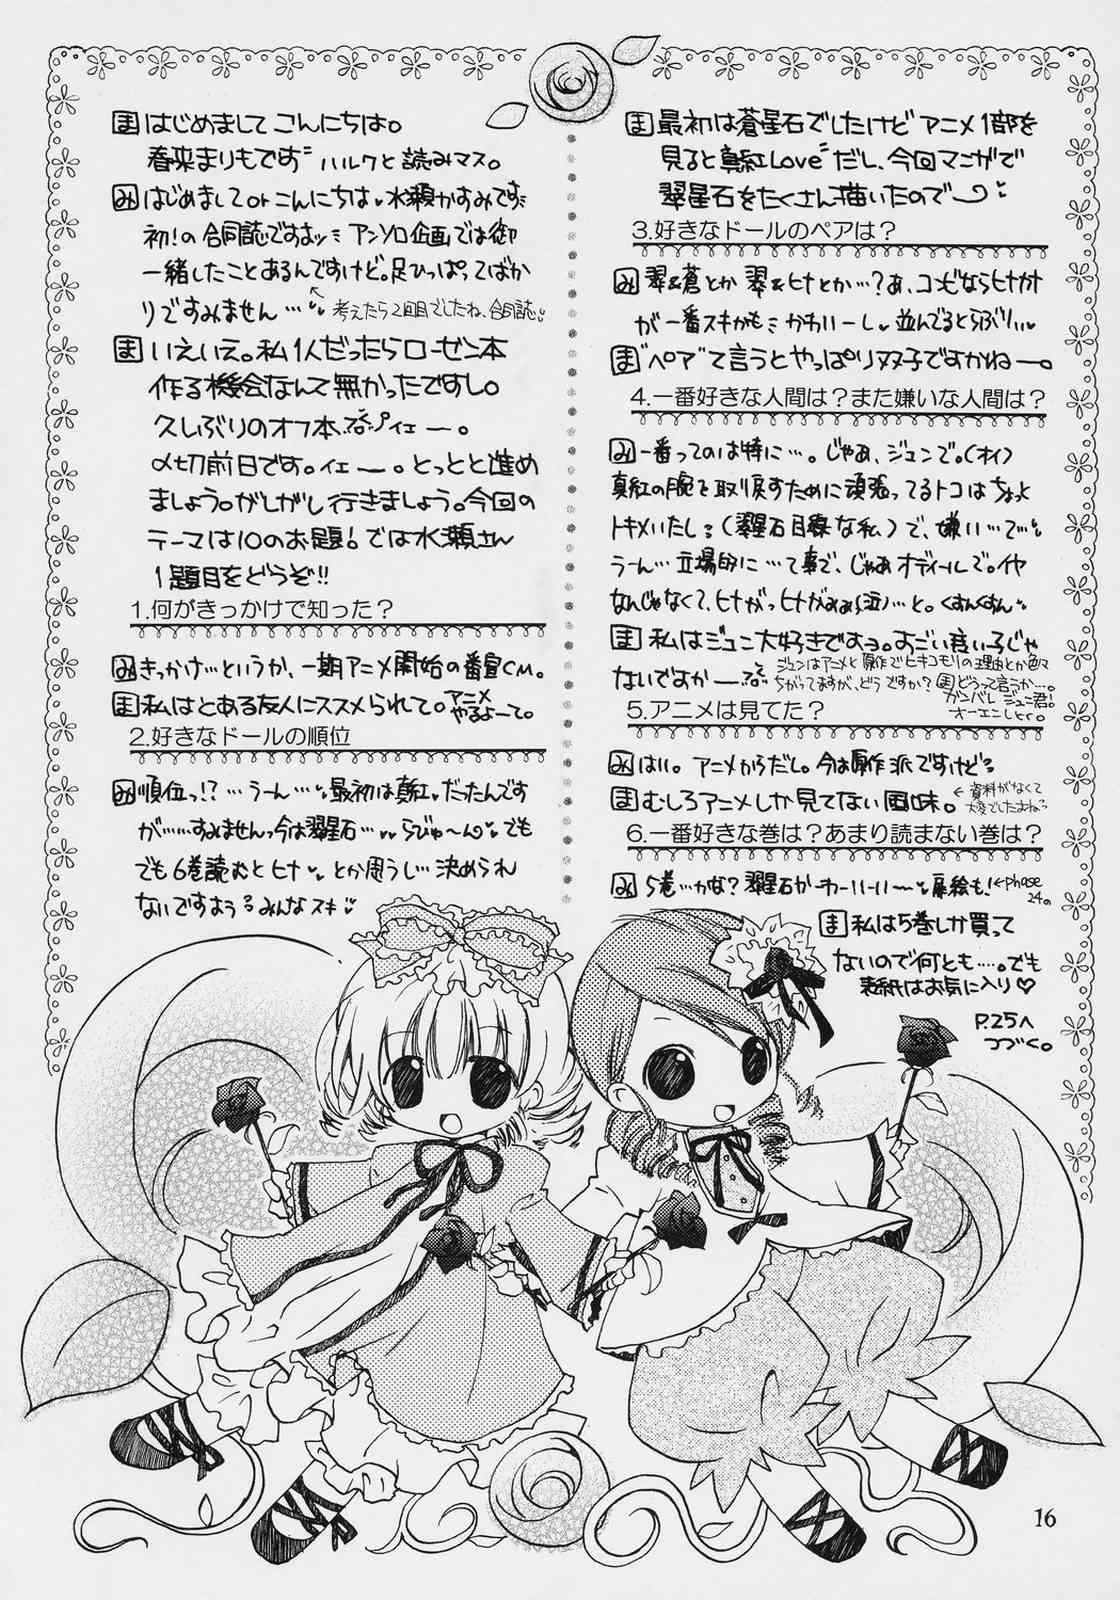 ま はじめまして こんにちは。
春来まりもです" ハルクと読みマス。
み はじめましてorこんにちは 水瀬かすみです
初!の合同誌ですよッ アンソロ企画では御
一緒したことあるんですけど。足ひっぱってばか
りですみません…
考えたら2回目でしたね、合同誌
ま いえいえ。私1人だったらローゼン本
作る機会なんて無かったですし。
久しぶりのオフ本、イェー。
〆切前日です。イェー。とっとと進め
ましょう。がしがし行きましょう。今回の
テーマは10のお題!では水瀬さん
1題目をどうぞ!!
1.何がきっかけで知った?
み きっかけ…というか、一期アニメ開始の番宣CM。
ま 私はとある友人にススメられて。アニメ
やるよーて。
2.好きなドールの順位
み 順位っ!?…うーん…最初は真紅 だったんです
が……すみませんっ今は翠星石… らびゅ〜ん でも
でも6巻読むとヒナ とか思うし…決められ
ないですよう みんなスキ
ま 最初は蒼星石でしたけどアニメ1部を
見ると真紅Love だし、今回マンガで
翠星石をたくさん描いたので〜
3.好きなドールのペアは?
み 翠&蒼とか 翠&ヒナとか…?あ、コンビならヒナカナ
が一番スキかも かわいーし 並んでるとらぶり
ま "ペア"て言うとやっぱり双子ですかねー。
4.一番好きな人間は?また嫌いな人間は?
み 一番ってのは特に…。じゃあ、ジュンで。(オイ)
真紅の腕を取り戻すために頑張ってるトコはちょっと
トキメいたし (翠星石目線な私)で、嫌い…で…
うーん…立場的に…て事で、じゃあオディールで。イヤ
なんじゃなくて、ヒナがっヒナがぁぁ(泣)…と。くすんくすん
ま 私はジュン大好きですョ。すごい良い子じゃ
ないですかー
ジュンはアニメと原作でヒキコモリの理由とか色々
ちがってますが、どうですか? ま どうって言うか…。
ガンバレ ジュン君!
オーエンしとく。
5.アニメは見てた?
み はい。アニメからだし。今は原作派ですけど
ま むしろアニメしか見てない風味。
←資料がなくて
大変でしたよねっ
6.一番好きな巻は?あまり読まない巻は?
み 5巻…かな?翠星石がーわーいーいー〜 扉絵も!←phase
24の
ま 私は5巻しか買って
ないので何とも……。でも
表紙はお気に入り♡
P.25へ
つづく。
16